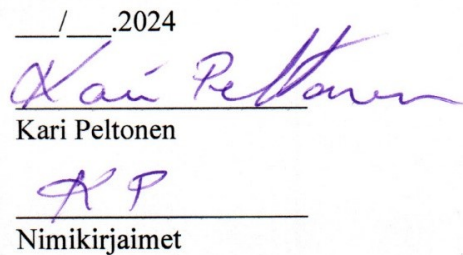 ___/___.2024
Kari Peltonen
Kari Peltonen
K P
Nimikirjaimet